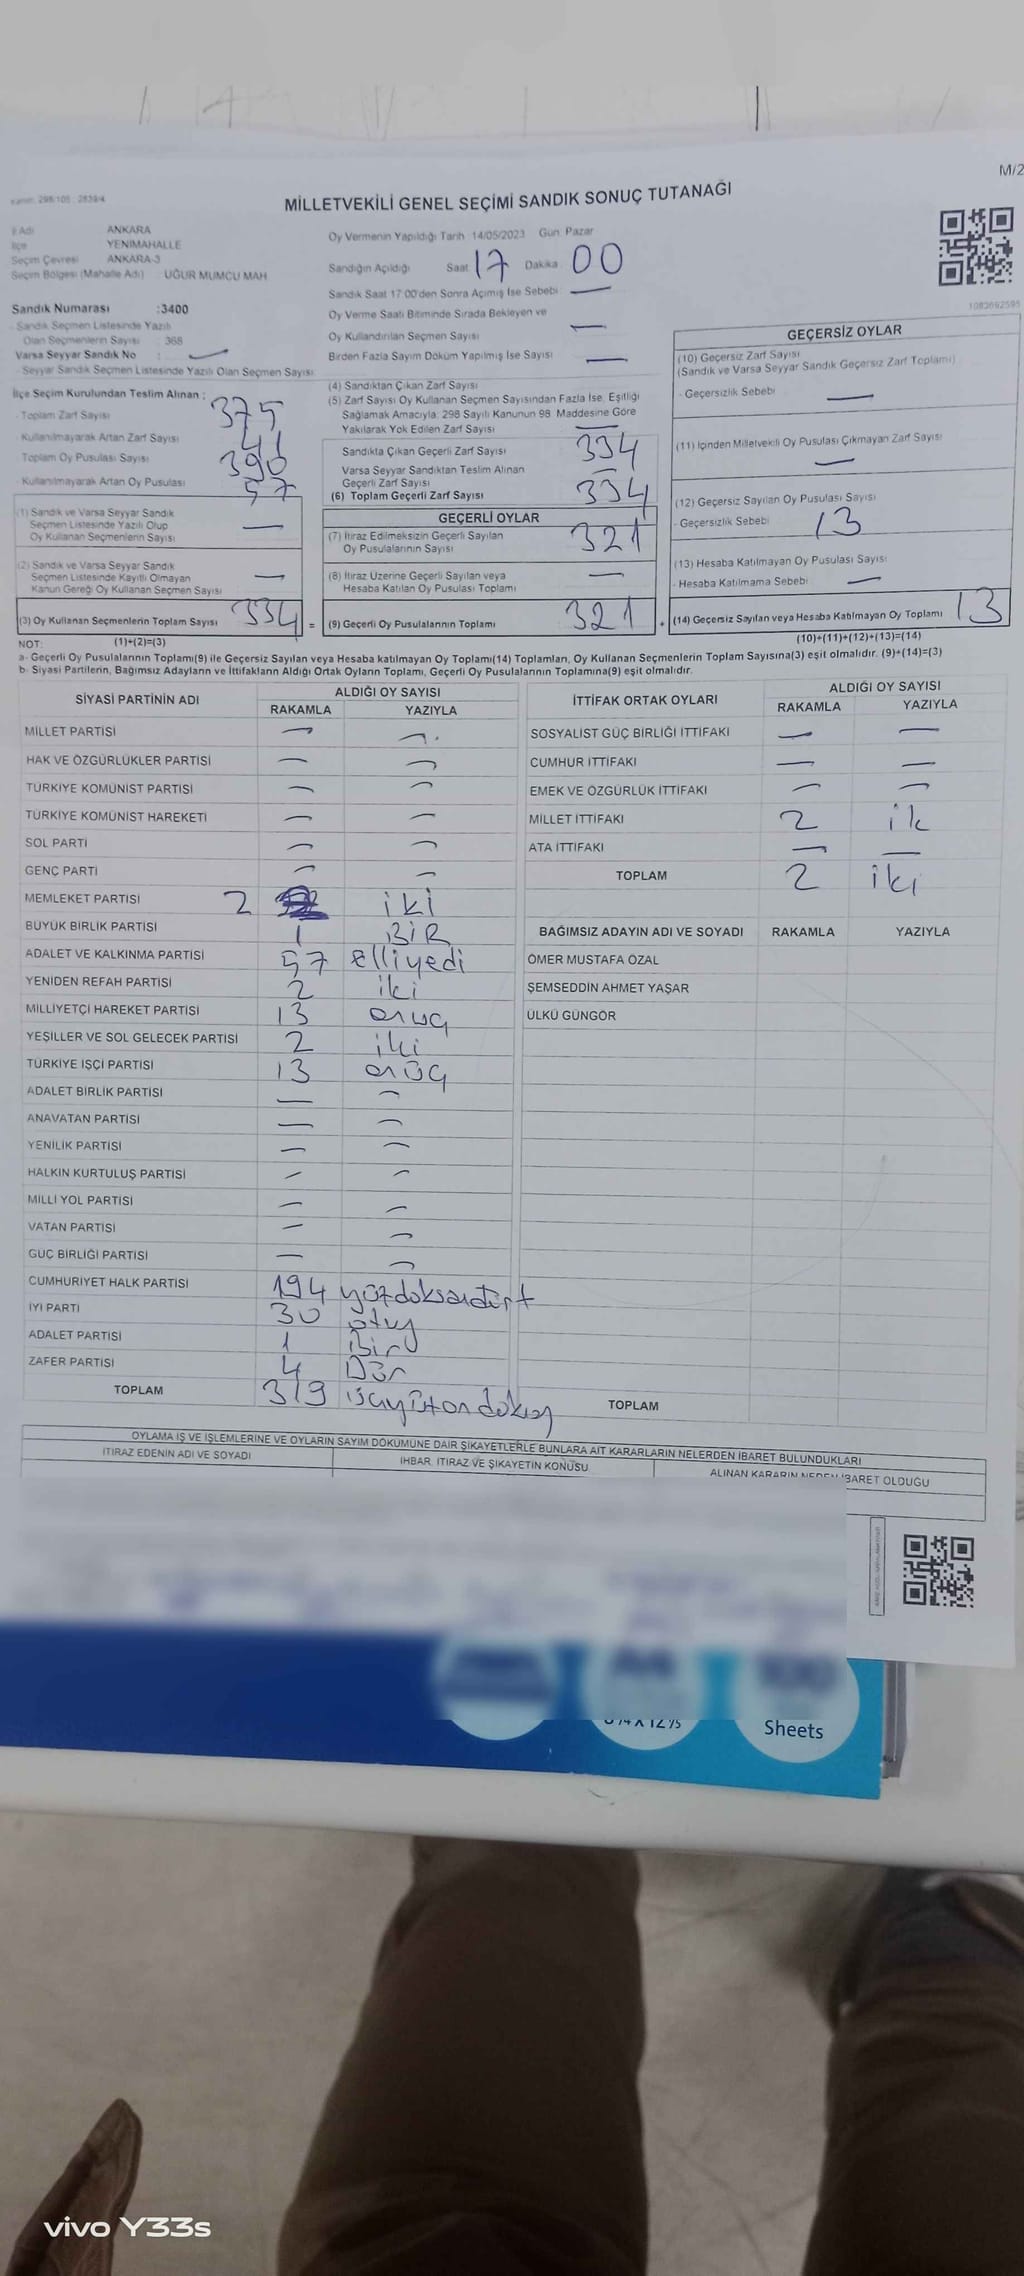 M/2
MİLLETVEKİLİ GENEL SEÇİMİ SANDIK SONUÇ TUTANAĞI
İl Adı ANKARA
İlçe YENİMAHALLE
Seçim Çevresi ANKARA-3
Seçim Bölgesi (Mahalle Adı) : UĞUR MUMCU MAH
Sandık Numarası :3400
- Sandık Seçmen Listesinde Yazılı
Olan Seçmenlerin Sayısı : 368
Varsa Seyyar Sandık No : —
- Seyyar Sandık Seçmen Listesinde Yazılı Olan Seçmen Sayısı
İlçe Seçim Kurulundan Teslim Alınan :
- Toplam Zarf Sayısı 375
- Kullanılmayarak Artan Zarf Sayısı 41
- Toplam Oy Pusulası Sayısı 390
- Kullanılmayarak Artan Oy Pusulası 57
(1) Sandık ve Varsa Seyyar Sandık
Seçmen Listesinde Yazılı Olup
Oy Kullanan Seçmenlerin Sayısı —
(2) Sandık ve Varsa Seyyar Sandık
Seçmen Listesinde Kayıtlı Olmayan
Kanun Gereği Oy Kullanan Seçmen Sayısı —
(3) Oy Kullanan Seçmenlerin Toplam Sayısı 334 =
Oy Vermenin Yapıldığı Tarih 14/05/2023 Gün: Pazar
Sandığın Açıldığı Saat 17 Dakika 00
Sandık Saat 17:00'den Sonra Açımış İse Sebebi —
Oy Verme Saati Bitiminde Sırada Bekleyen ve
Oy Kullandırılan Seçmen Sayısı —
Birden Fazla Sayım Döküm Yapılmış İse Sayısı —
(4) Sandıktan Çıkan Zarf Sayısı
(5) Zarf Sayısı Oy Kullanan Seçmen Sayısından Fazla İse, Eşitliği
Sağlamak Amacıyla: 298 Sayılı Kanunun 98. Maddesine Göre
Yakılarak Yok Edilen Zarf Sayısı —
Sandıkta Çıkan Geçerli Zarf Sayısı 334
Varsa Seyyar Sandıktan Teslim Alınan
Geçerli Zarf Sayısı —
(6) Toplam Geçerli Zarf Sayısı 334
GEÇERLİ OYLAR
(7) İtiraz Edilmeksizin Geçerli Sayılan
Oy Pusulalarının Sayısı 321
(8) İtiraz Üzerine Geçerli Sayılan veya
Hesaba Katılan Oy Pusulası Toplamı —
(9) Geçerli Oy Pusulalarının Toplamı 321 +
GEÇERSİZ OYLAR
(10) Geçersiz Zarf Sayısı
(Sandık ve Varsa Seyyar Sandık Geçersiz Zarf Toplamı)
- Geçersizlik Sebebi —
(11) İçinden Milletvekili Oy Pusulası Çıkmayan Zarf Sayısı
—
(12) Geçersiz Sayılan Oy Pusulası Sayısı
- Geçersizlik Sebebi 13
(13) Hesaba Katılmayan Oy Pusulası Sayısı
- Hesaba Katılmama Sebebi —
(14) Geçersiz Sayılan veya Hesaba Katılmayan Oy Toplamı 13
NOT: (1)+(2)=(3) (10)+(11)+(12)+(13)=(14)
a- Geçerli Oy Pusulalarının Toplamı(9) ile Geçersiz Sayılan veya Hesaba katılmayan Oy Toplamı(14) Toplamları, Oy Kullanan Seçmenlerin Toplam Sayısına(3) eşit olmalıdır. (9)+(14)=(3)
b- Siyasi Partilerin, Bağımsız Adayların ve İttifakların Aldığı Ortak Oyların Toplamı, Geçerli Oy Pusulalarının Toplamına(9) eşit olmalıdır.
SİYASİ PARTİNİN ADI ALDIĞI OY SAYISI
RAKAMLA YAZIYLA
MİLLET PARTİSİ — —
HAK VE ÖZGÜRLÜKLER PARTİSİ — —
TÜRKİYE KOMÜNİST PARTİSİ — —
TÜRKİYE KOMÜNİST HAREKETİ — —
SOL PARTİ — —
GENÇ PARTİ — —
MEMLEKET PARTİSİ 2 iki
BÜYÜK BİRLİK PARTİSİ 1 BİR
ADALET VE KALKINMA PARTİSİ 57 elliyedi
YENİDEN REFAH PARTİSİ 2 iki
MİLLİYETÇİ HAREKET PARTİSİ 13 onuç
YEŞİLLER VE SOL GELECEK PARTİSİ 2 iki
TÜRKİYE İŞÇİ PARTİSİ 13 onüç
ADALET BİRLİK PARTİSİ — —
ANAVATAN PARTİSİ — —
YENİLİK PARTİSİ — —
HALKIN KURTULUŞ PARTİSİ — —
MİLLİ YOL PARTİSİ — —
VATAN PARTİSİ — —
GÜÇ BİRLİĞİ PARTİSİ — —
CUMHURİYET HALK PARTİSİ 194 yüzdoksandört
İYİ PARTİ 30 otuz
ADALET PARTİSİ 1 Bir
ZAFER PARTİSİ 4 Dör
TOPLAM 319
İTTİFAK ORTAK OYLARI ALDIĞI OY SAYISI
RAKAMLA YAZIYLA
SOSYALİST GÜÇ BİRLİĞİ İTTİFAKI — —
CUMHUR İTTİFAKI — —
EMEK VE ÖZGÜRLÜK İTTİFAKI — —
MİLLET İTTİFAKI 2 ik
ATA İTTİFAKI — —
TOPLAM 2 iki
BAĞIMSIZ ADAYIN ADI VE SOYADI RAKAMLA YAZIYLA
ÖMER MUSTAFA ÖZAL
ŞEMSEDDİN AHMET YAŞAR
ÜLKÜ GÜNGÖR
TOPLAM
OYLAMA İŞ VE İŞLEMLERİNE VE OYLARIN SAYIM DÖKÜMÜNE DAİR ŞİKAYETLERLE BUNLARA AİT KARARLARIN NELERDEN İBARET BULUNDUKLARI
İTİRAZ EDENİN ADI VE SOYADI İHBAR, İTİRAZ VE ŞİKAYETİN KONUSU ALINAN KARARIN NEDEN İBARET OLDUĞU
Sheets
vivo Y33s